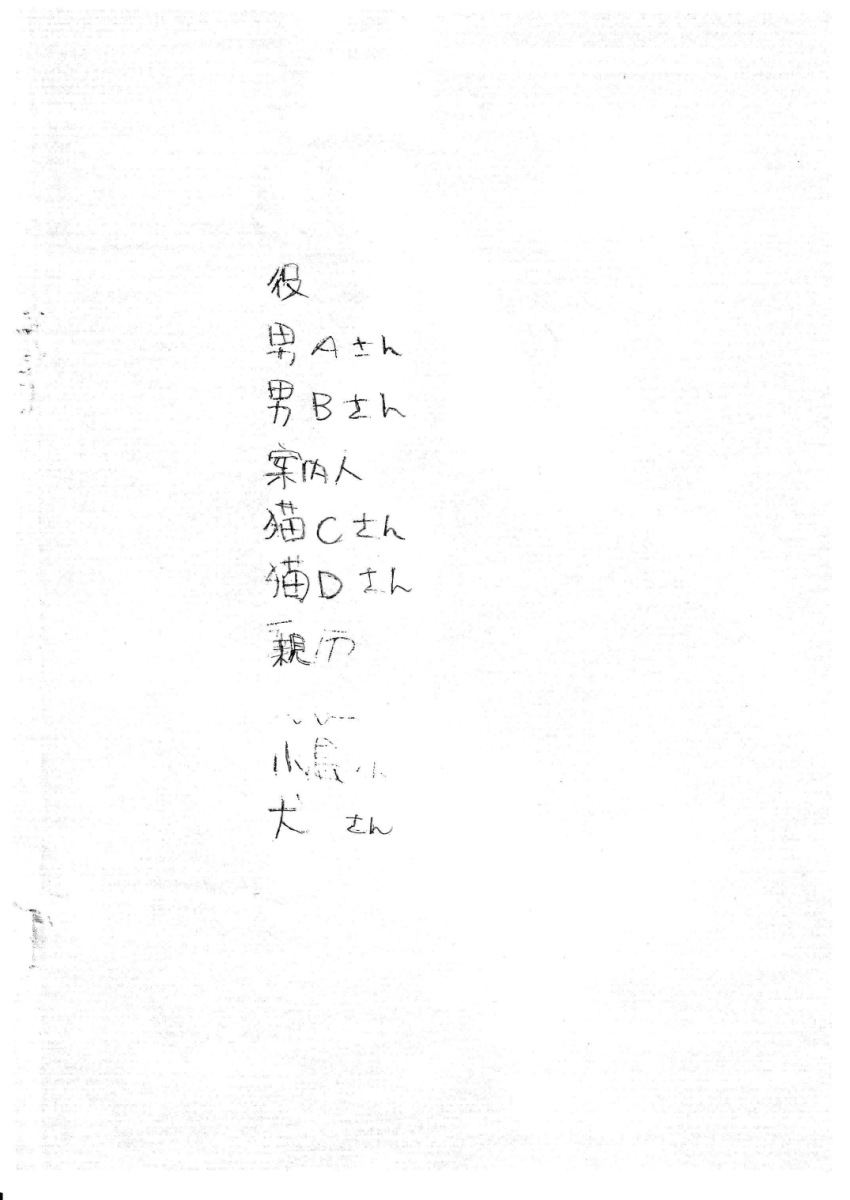 役
男Aさん
男Bさん
案内人
猫Cさん
猫Dさん
親方
小鳥さん
犬 さん